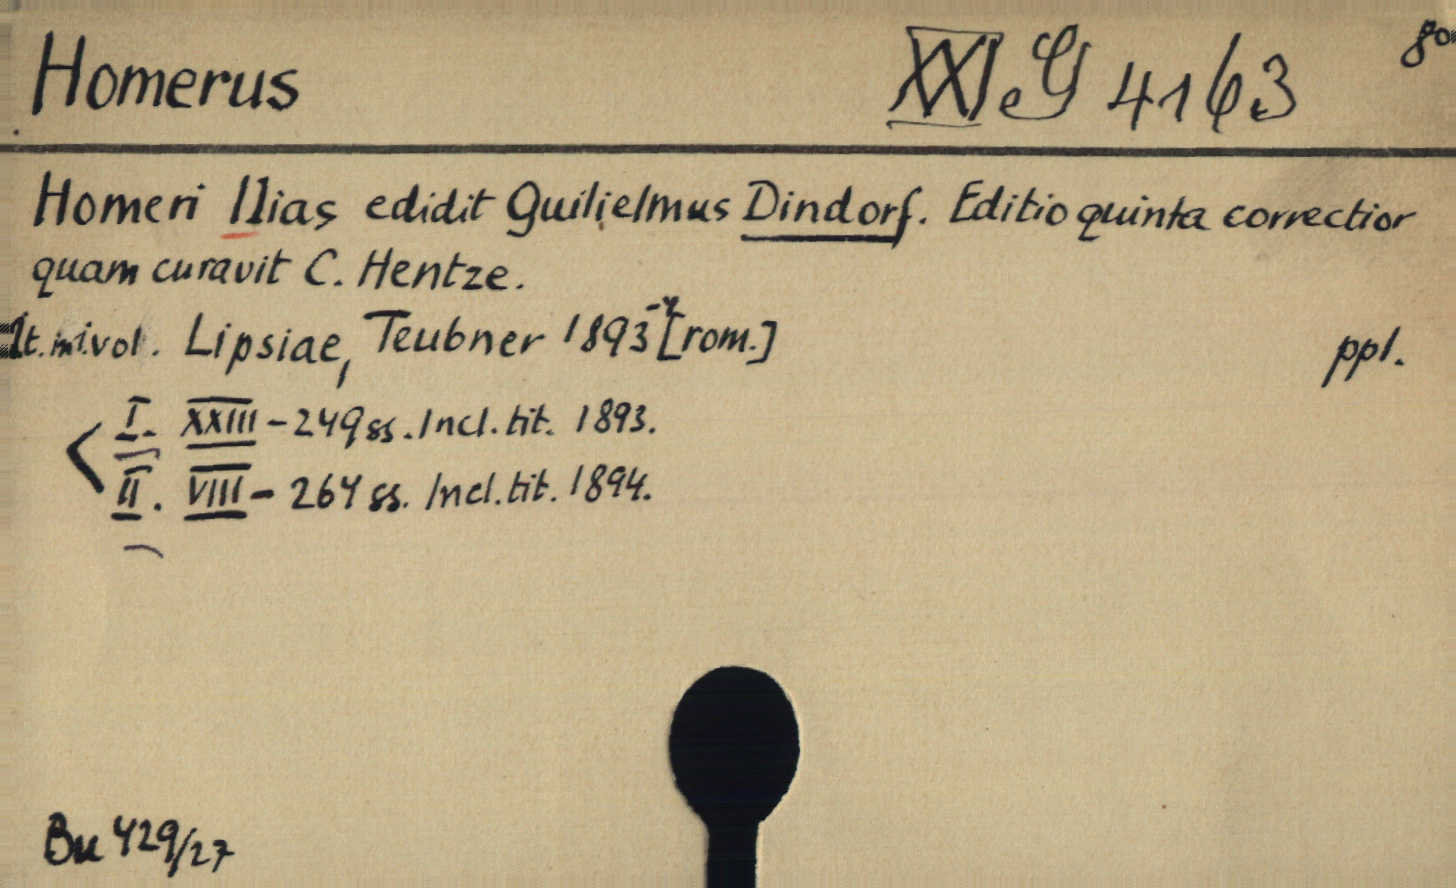 Homerus XXI. G 4163 8o
Homeri Ilias edidit Guilielmus Dindorf. Editio quinta correctior
quam curavit C. Hentze.
It. in i. vol. Lipsiae, Teubner 1893-4 [rom.] ppl.
I. XXIII - 249 ss. Incl. tit. 1893.
II. VIII - 264 ss. Incl. tit. 1894.
Bu 429/27